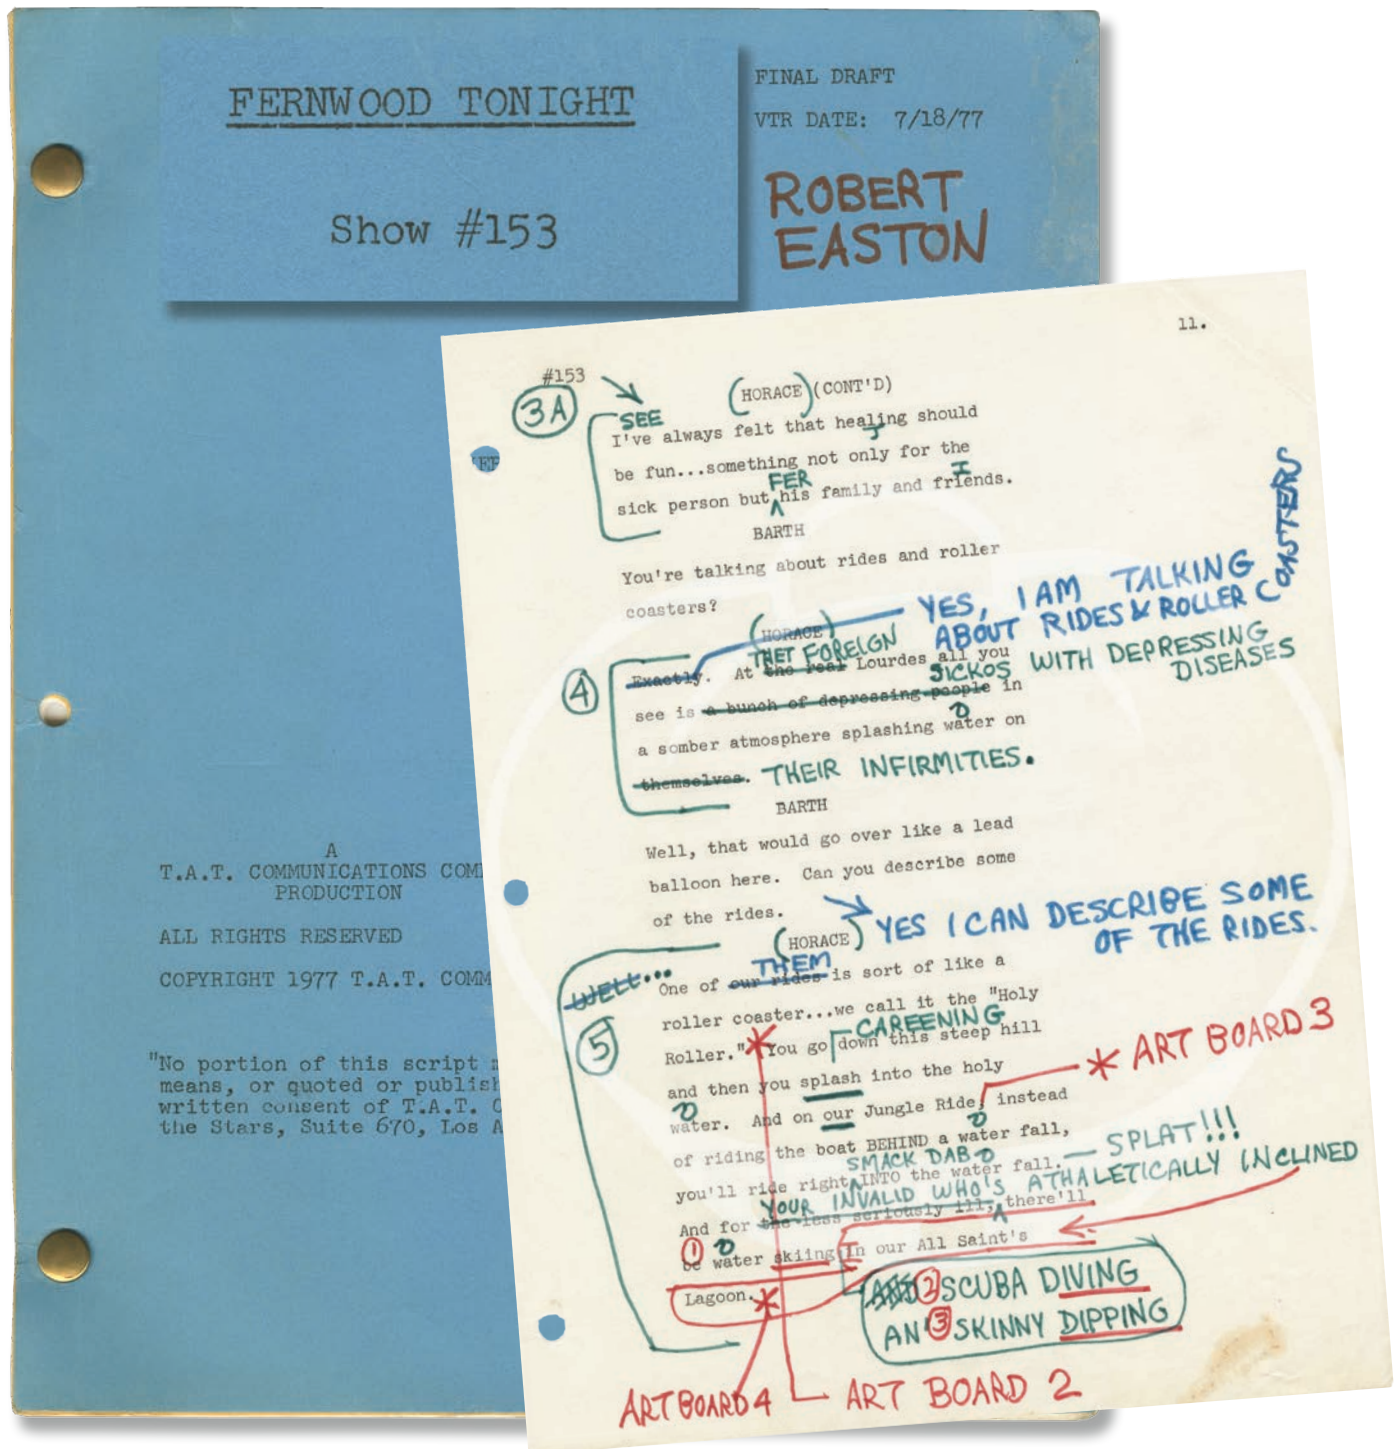 FERNWOOD TONIGHT
Show #153
FINAL DRAFT
VTR DATE: 7/18/77
ROBERT
EASTON
A
T.A.T. COMMUNICATIONS COM
PRODUCTION
ALL RIGHTS RESERVED
COPYRIGHT 1977 T.A.T. COMM
"No portion of this script
means, or quoted or publish
written consent of T.A.T. C
the Stars, Suite 670, Los A
11.
#153
3A
(HORACE) (CONT'D)
SEE
I've always felt that healing should
be fun...something not only for the
FER I
sick person but his family and friends.
BARTH
You're talking about rides and roller
coasters?
YES, I AM TALKING
ABOUT RIDES & ROLLER COASTERS
(HORACE)
4
THET FOREIGN
Exactly. At the real Lourdes all you
SICKOS WITH DEPRESSING
DISEASES
see is a bunch of depressing people in
a somber atmosphere splashing water on
themselves. THEIR INFIRMITIES.
BARTH
Well, that would go over like a lead
balloon here. Can you describe some
of the rides.
YES I CAN DESCRIBE SOME
OF THE RIDES.
(HORACE)
WELL...
THEM
One of our rides is sort of like a
roller coaster...we call it the "Holy
5
CAREENING
Roller." * You go down this steep hill
* ART BOARD 3
and then you splash into the holy
water. And on our Jungle Ride, instead
of riding the boat BEHIND a water fall,
SMACK DAB
you'll ride right INTO the water fall. — SPLAT!!!
YOUR INVALID WHO'S ATHALETICALLY INCLINED
And for the less seriously ill, there'll
1
be water skiing in our All Saint's
Lagoon. *
AND 2 SCUBA DIVING
AN' 3 SKINNY DIPPING
ART BOARD 4
ART BOARD 2